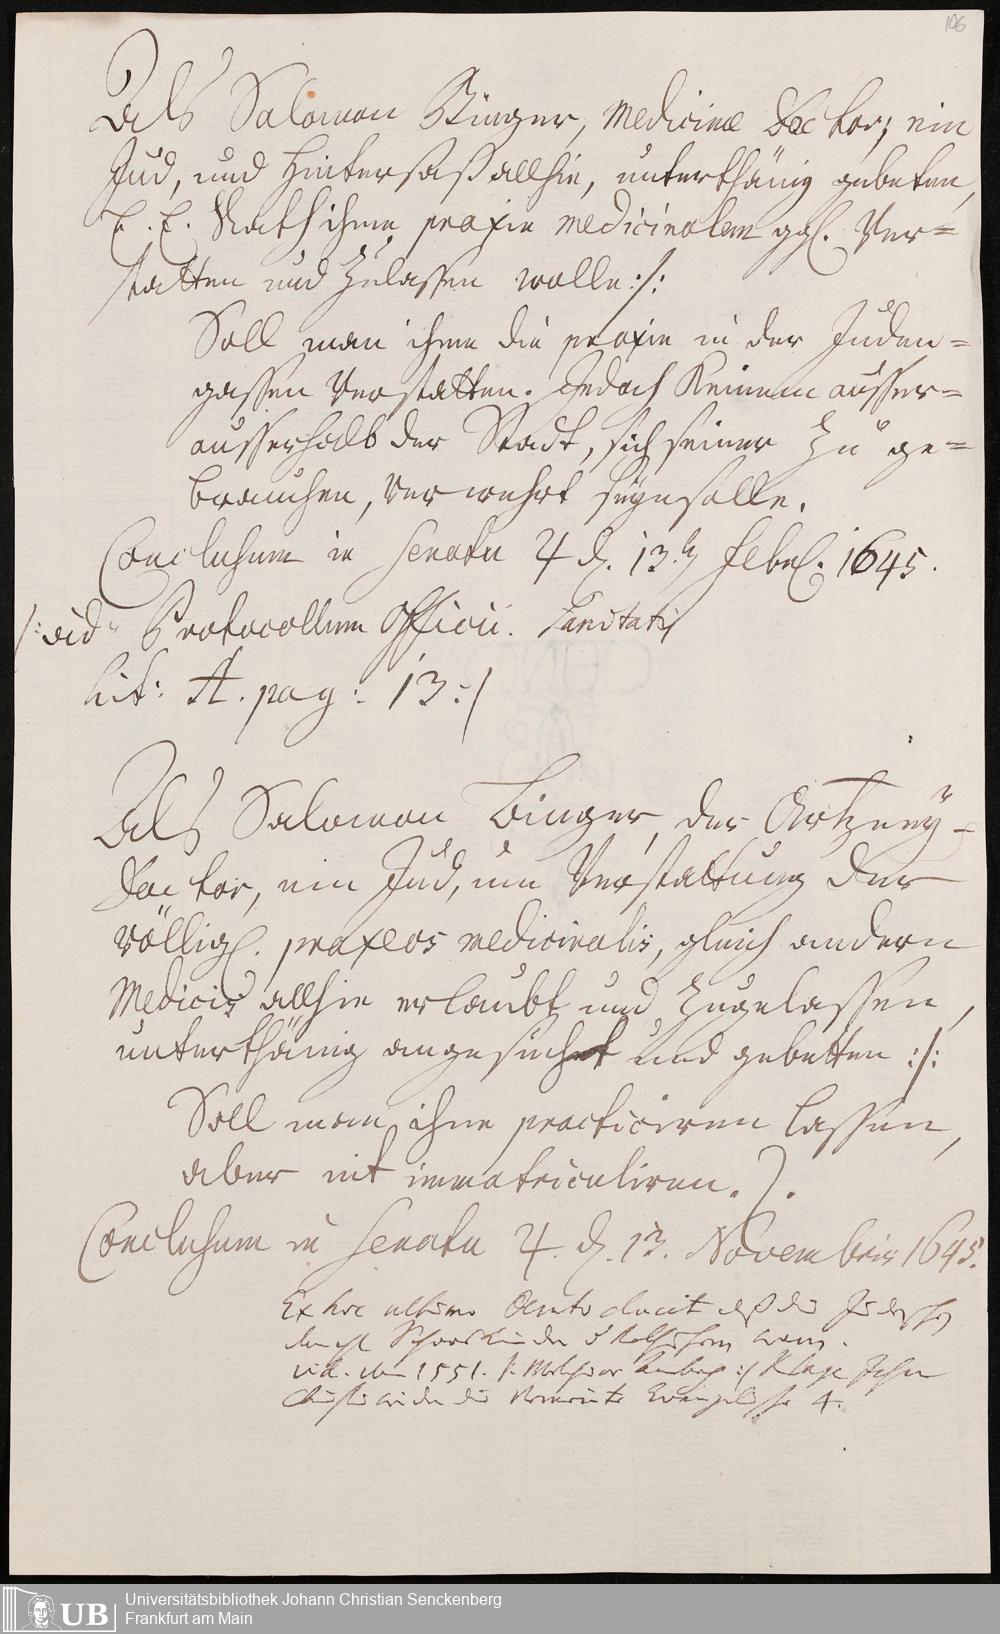 106
Als Salomon Binger, Medicinæ Doctor, ein
Jud, und Hintersaß allhie, unterthänig gebeten,
E. E. Rath ihme praxin medicinalem ggl. Ver=
statten und Zulassen wolle :/:
Soll man ihme die praxin in der Juden=
gassen Verstatten. Jedoch Keinem ausser=
ausserhalb der Stadt, sich seiner Zu ge=
brauchen, Verwehrt seyn solle.
Conclusum in Senatu 4 d. 13. Febr. 1645.
/: vid. Protocollum Officii Sanitatis
Lit: A. pag: 13 :/
Als Salomon Binger, der Artzney-
Doctor, ein Jud, um Verstattung der
völlig. praxeos medicinalis, gleich andern
Medicis allhie erlaubt und Zugelassen,
unterthänig angesucht und gebetten :/:
Soll man ihne practiciren lassen,
aber nit immatriculiren.
Conclusum in Senatu 4. d. 13. Novembris 1645.
Ex hoc ultimo
vid. 1551.
4.
Universitätsbibliothek Johann Christian Senckenberg
Frankfurt am Main
UB